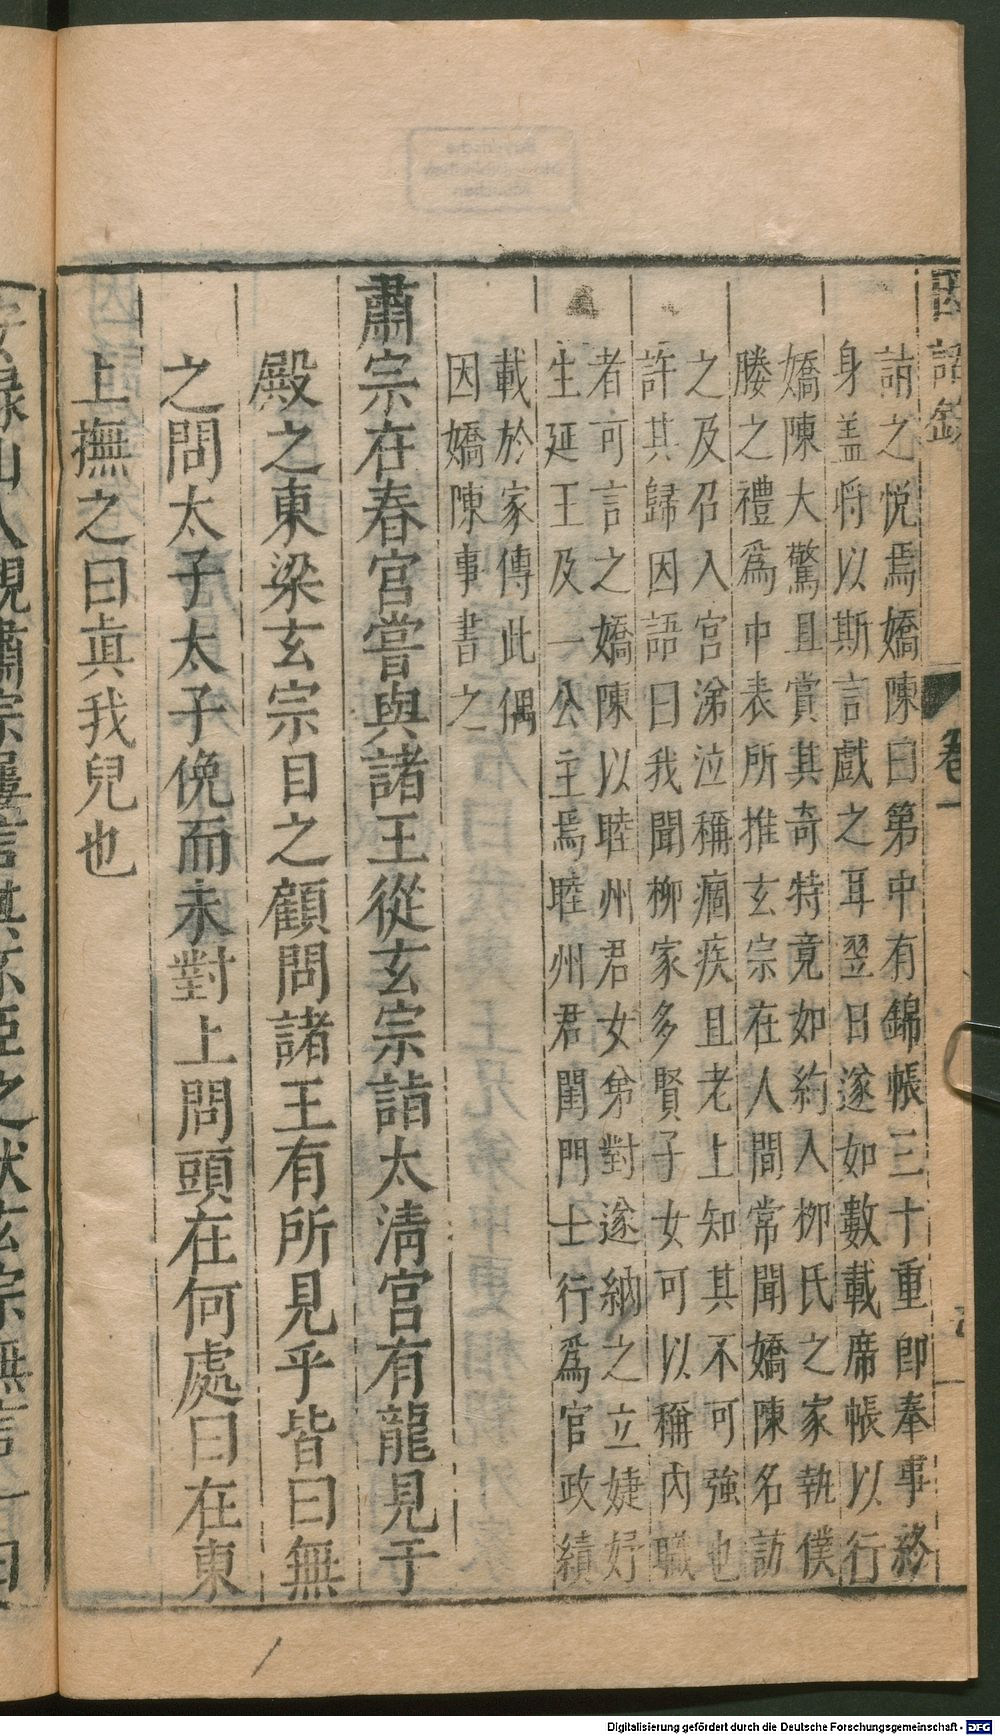 因話錄 卷一
詣之悅焉嬌陳曰第中有錦帳三十重即奉事終
身盖将以斯言戲之耳翌日遂如數載席帳以行
嬌陳大驚且賞其奇特竟如約入柳氏之家執僕
媵之禮爲中表所推玄宗在人間常聞嬌陳名訪
之及召入宮涕泣稱痼疾且老上知其不可強也
許其歸因語曰我聞柳家多賢子女可以稱內職
者可言之嬌陳以睦州君女弟對遂納之立婕妤
生延王及一公主焉睦州君閨門士行爲官政績
載於家傳此偶
因嬌陳事書之
肅宗在春宮嘗與諸王從玄宗詣太清宮有龍見于
殿之東梁玄宗目之顧問諸王有所見乎皆曰無
之問太子太子俛而未對上問頭在何處曰在東
上撫之曰眞我兒也
安祿山入覲肅宗屢言其不臣之狀玄宗無言一日
Digitalisierung gefördert durch die Deutsche Forschungsgemeinschaft - DFG